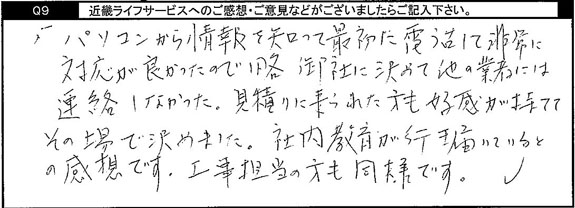 Q9 近畿ライフサービスへのご感想・ご意見などがございましたらご記入下さい。
パソコンから情報を知って最初に電話して非常に
対応が良かったので 御社に決めて他の業者には
連絡しなかった。見積りに来られた方も好感が持てて
その場で決めました。社内教育が行き届いていると
の感想です。工事担当の方も同様です。